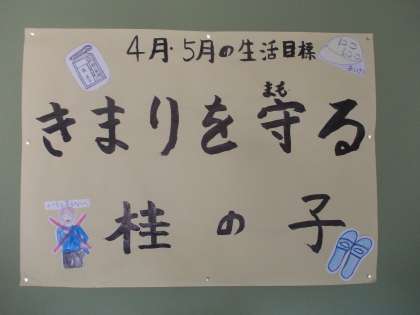 4月・5月の生活目標
まも
きまりを守る
桂の子